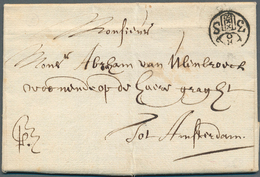 Monsieur
Mons.r Abraham van Ulenbroeck
woonende op de Heere graght
Tot Amsterdam.